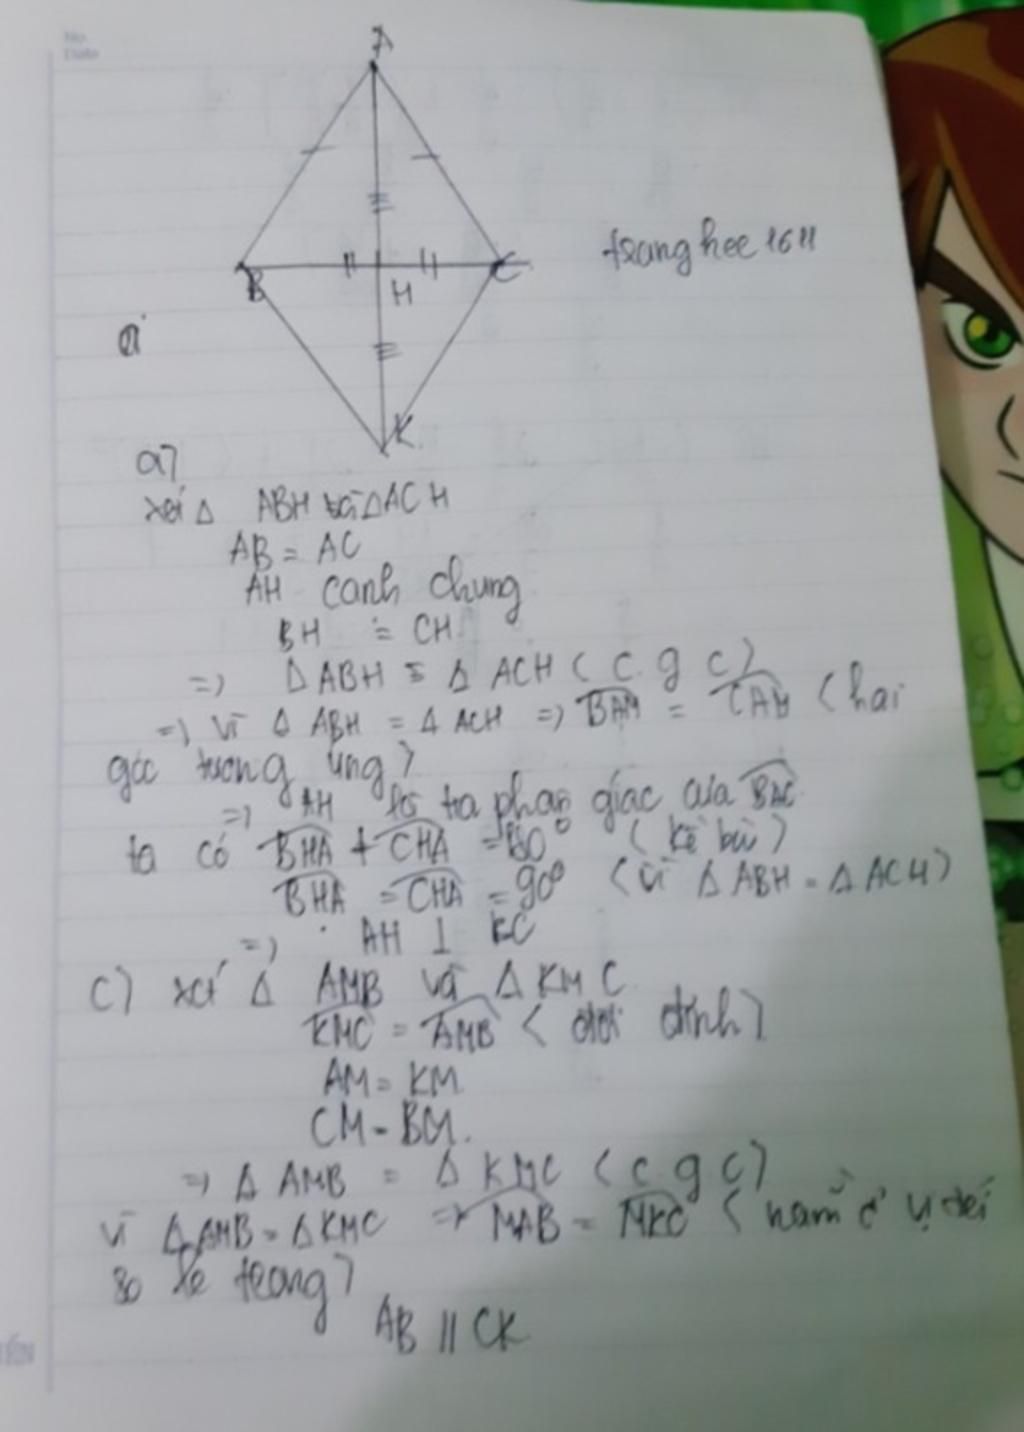 No.
Date
A
B
H
C
tranghee1611
K
a)
xét Δ ABH và Δ ACH
AB = AC
AH canh chung
BH = CH
=> Δ ABH = Δ ACH ( c. g c)
=> vì Δ ABH = Δ ACH => BAM = CAM ( hai
góc tương ứng )
=> AH là tia phân giác của BAC
ta có BHA + CHA = 180° ( kề bù )
BHA = CHA = 90° ( vì Δ ABH = Δ ACH )
=> AH ⊥ KC
C) xét Δ AMB và Δ KMC
KMC = AMB ( đối đỉnh )
AM = KM
CM = BM.
=> Δ AMB = Δ KMC ( c g c )
vì Δ AMB = Δ KMC => MAB = MKC ( nằm ở vị trí
so le trong )
AB // CK